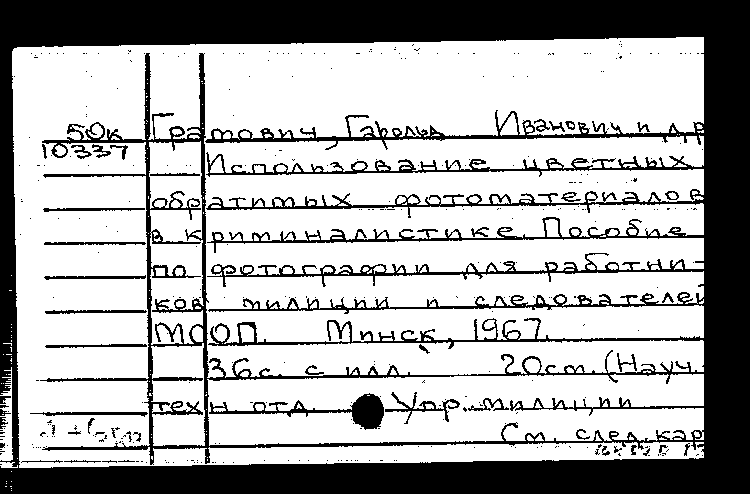 50к
10337
Грамович, Гарольд Иванович и др
Использование цветных
обратимых фотоматериалов
в криминалистике. Пособие
по фотографии для работни-
ков милиции и следователей
МООП. Минск, 1967.
36с. с илл. 20см. (Науч.-
техн. отд. Упр. милиции
См. след. кар